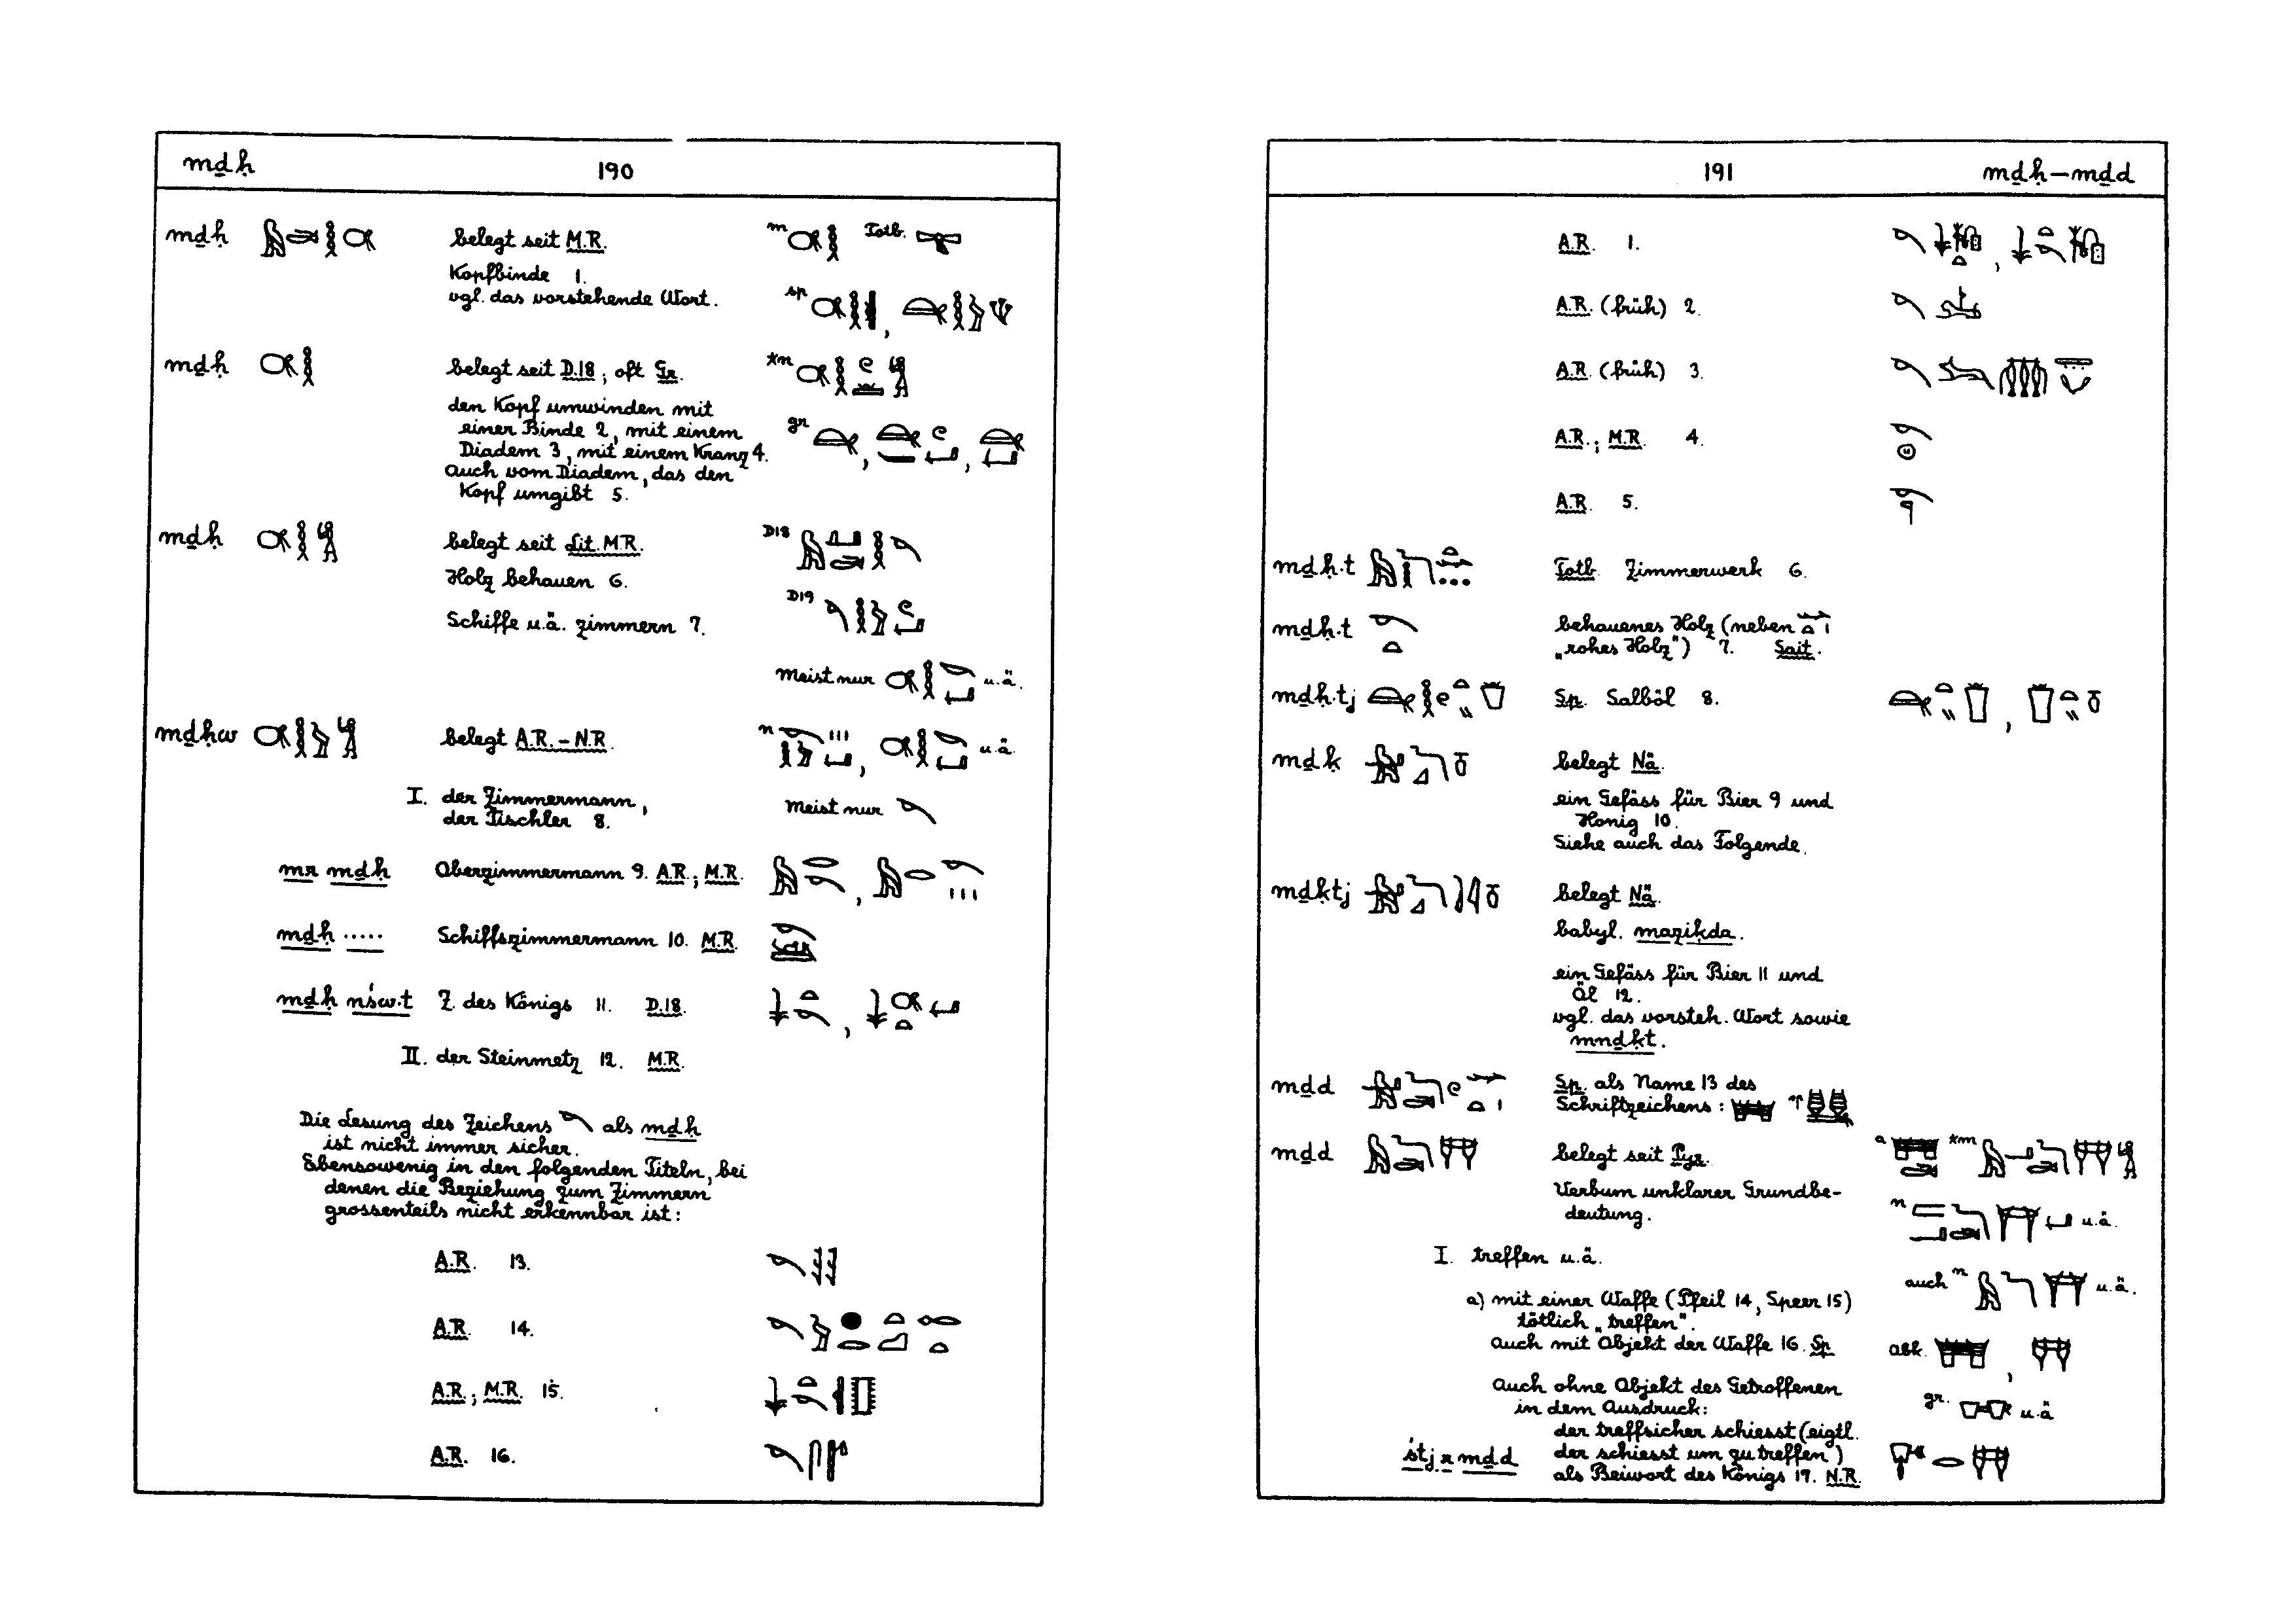 mḏḥ 190
mḏḥ belegt seit M.R. m Totb.
Kopfbinde 1.
vgl. das vorstehende Wort. sp
mḏḥ belegt seit D.18; oft Gr. *m
den Kopf umwinden mit
einer Binde 2, mit einem gr
Diadem 3, mit einem Kranz 4.
auch vom Diadem, das den
Kopf umgibt 5.
mḏḥ belegt seit Lit. M.R. D18
Holz behauen 6.
D19
Schiffe u.ä. zimmern 7.
meist nur u.ä.
mḏḥw belegt A.R. – N.R. n u.ä.
I. der Zimmermann,
der Tischler 8. meist nur
mr mḏḥ Oberzimmermann 9. A.R.; M.R.
mḏḥ ..... Schiffszimmermann 10. M.R.
mḏḥ nśw.t Z. des Königs 11. D.18.
II. der Steinmetz 12. M.R.
Die Lesung des Zeichens als mḏḥ
ist nicht immer sicher.
Ebensowenig in den folgenden Titeln, bei
denen die Beziehung zum Zimmern
grossenteils nicht erkennbar ist:
A.R. 13.
A.R. 14.
A.R.; M.R. 15.
A.R. 16.
191 mḏḥ – mḏd
A.R. 1.
A.R. (früh) 2.
A.R. (früh) 3.
A.R.; M.R. 4.
A.R. 5.
mḏḥ.t Totb. Zimmerwerk 6.
mḏḥ.t behauenes Holz (neben
„rohes Holz") 7. Sait.
mḏḥ.tj Sp. Salböl 8.
mḏḳ belegt Nä.
ein Gefäss für Bier 9 und
Honig 10.
Siehe auch das Folgende.
mḏḳtj belegt Nä.
babyl. maziḳda.
ein Gefäss für Bier 11 und
Öl 12.
vgl. das vorsteh. Wort sowie
mnḏḳt.
mḏd Sp. als Name 13 des
Schriftzeichens:
mḏd belegt seit Pyr. a *m
Verbum unklarer Grundbe-
deutung. n u.ä.
I. treffen u.ä.
auch n u.ä.
a) mit einer Waffe (Pfeil 14, Speer 15)
tötlich „treffen".
auch mit Objekt der Waffe 16. Sp. abk.
Auch ohne Objekt des Getroffenen gr. u.ä
in dem Ausdruck:
der treffsicher schiesst (eigtl.
śtj r mḏd der schiesst um zu treffen)
als Beiwort des Königs 17. N.R.